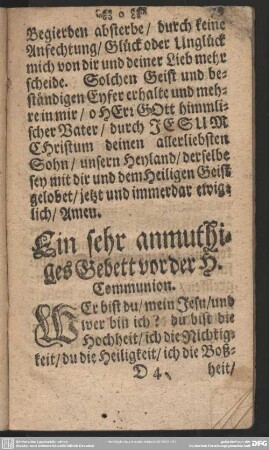 Begierden absterbe / durch keine
Anfechtung / Glück oder Unglück
mich von dir und deiner Lieb mehr
scheide. Solchen Geist und be-
ständigen Eyfer erhalte und meh-
re in mir / o HErr GOtt himmli-
scher Vater / durch JESUM
CHristum deinen allerliebsten
Sohn / unsern Heyland / derselbe
sey mit dir und dem Heiligen Geist
gelobet / jetzt und immerdar ewig-
lich / Amen.
Ein sehr anmuthi-
ges Gebett vor der H.
Communion.
WEr bist du / mein Jesu / und
wer bin ich? du bist die
Hochheit / ich die Nichtig-
keit / du die Heiligkeit / ich die Boß-
D 4 heit /